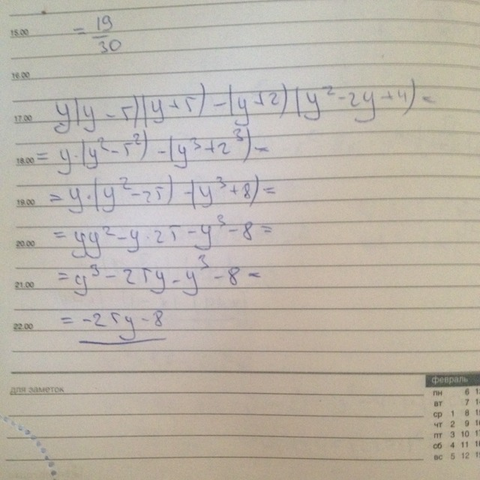 15.00
= 19/30
16.00
y(y-5)(y+5)-(y+2)(y²-2y+4)=
17.00
= y·(y²-5²)-(y³+2³)=
18.00
= y·(y²-25)-(y³+8)=
19.00
= yy²-y·25-y³-8=
20.00
= y³-25y-y³-8=
21.00
= -25y-8
22.00
для заметок
февраль
пн 6 13
вт 7 14
ср 1 8 15
чт 2 9 16
пт 3 10 17
сб 4 11 18
вс 5 12 19